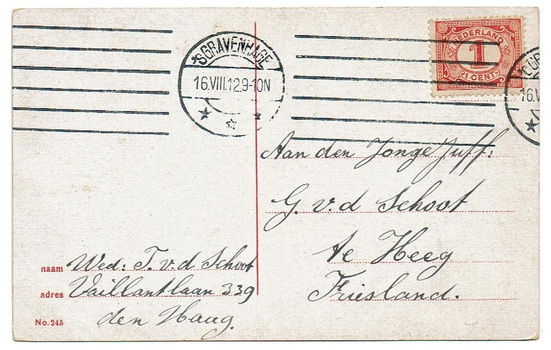 'SGRAVENHAGE
16.VIII.12.9-10N
NEDERLAND
1
1 CENT
Aan den Jonge Juff:
G. v. d Schoot
te Heeg
Friesland.
naam Wed: T. v. d Schoot
adres Vaillantlaan 339
den Haag.
No. 245